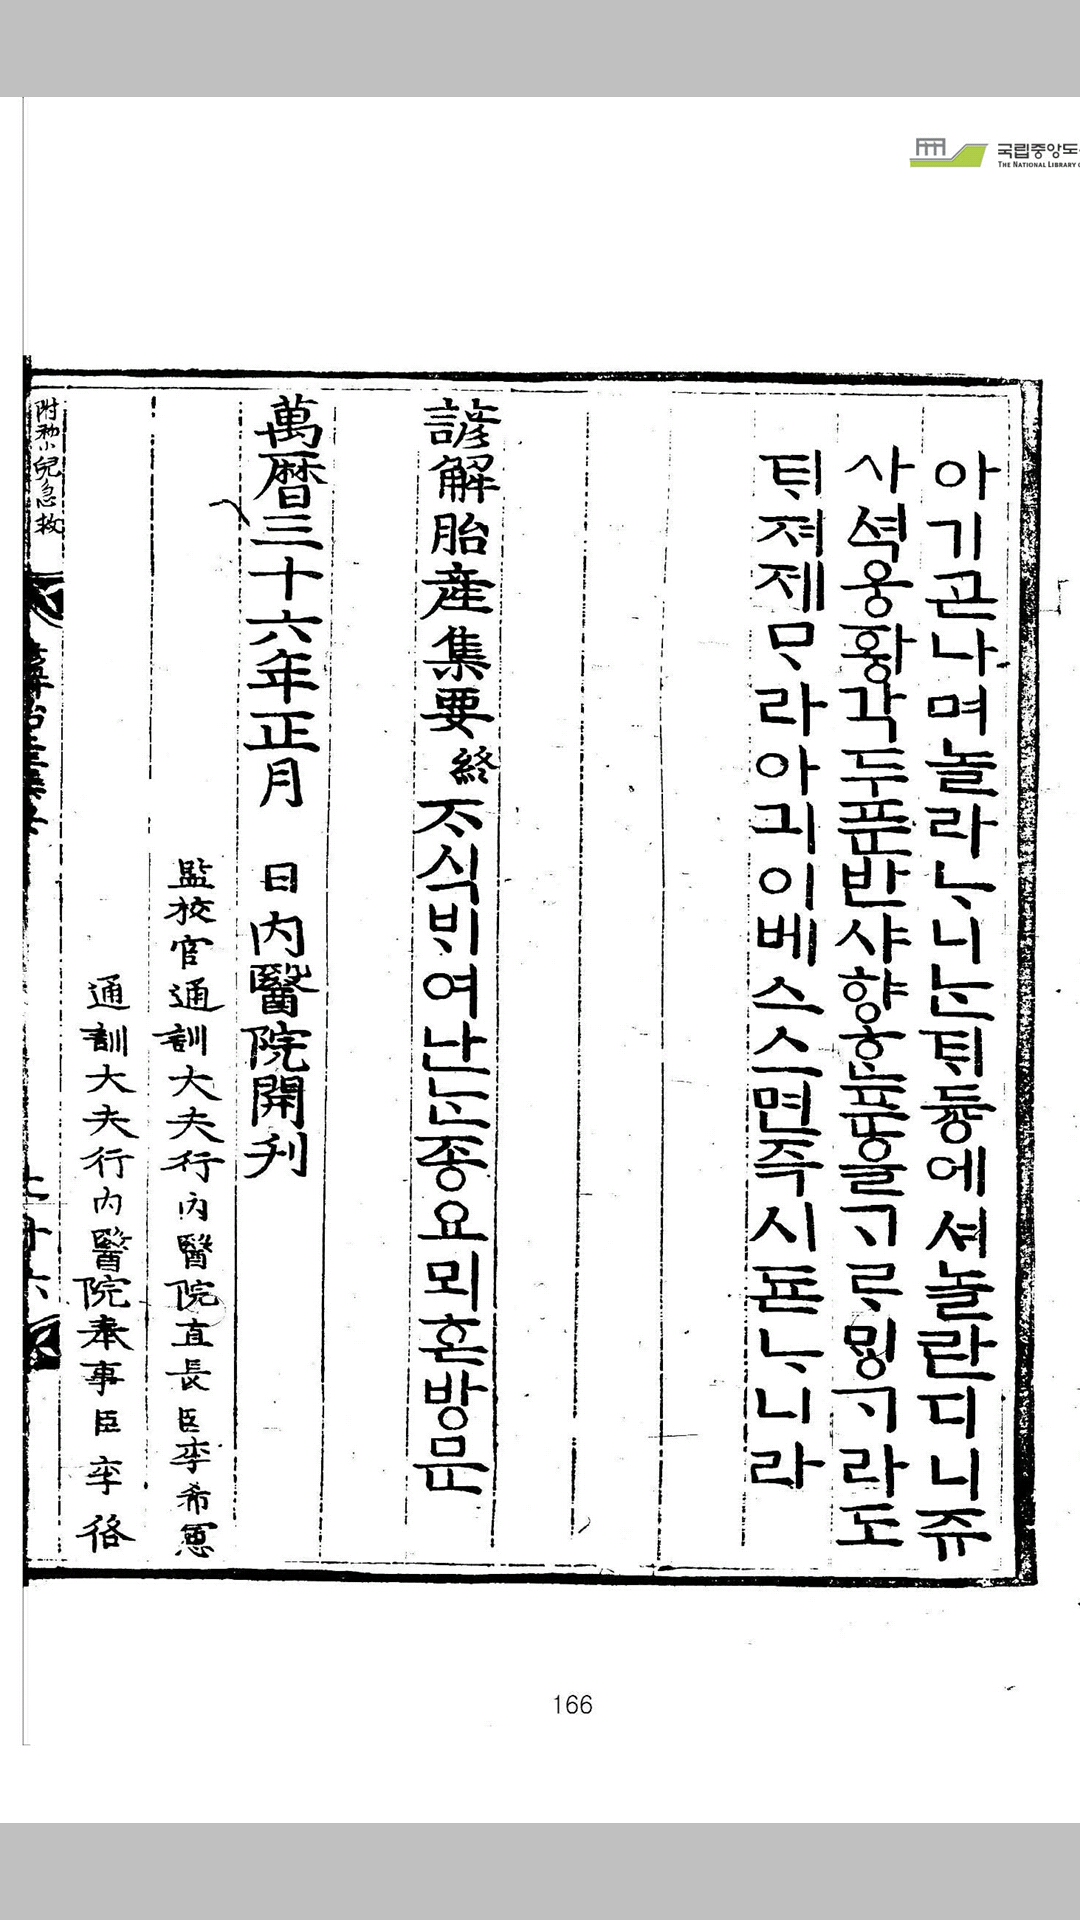 국립중앙도
THE NATIONAL LIBRARY
아기곧나며놀라ᄂᆞ니ᄂᆞᆫᄐᆡ듕에셔놀란디니쥬
사셕웅황각두푼반샤향ᄒᆞᆫ푼을ᄀᆞᄅᆞᄆᆡᆼᄀᆞ라도
ᄐᆡ져제ᄆᆞ라아긔이베스스면즉시됻ᄂᆞ니라
諺解胎産集要 終 ᄌᆞ식ᄇᆡ여난ᄂᆞᆫ종요뫼혼방문
萬曆三十六年正月 日內醫院開刋
監校官通訓大夫行內醫院直長臣李希憲
通訓大夫行內醫院奉事臣李
附 小兒急救
166